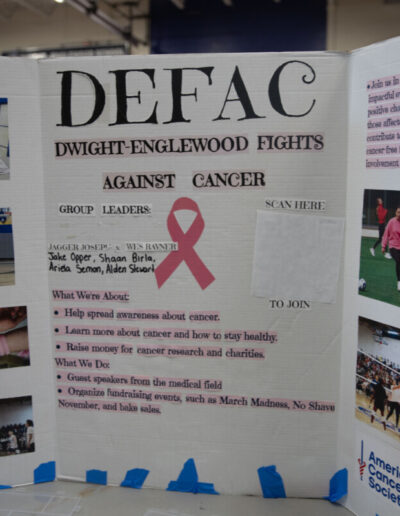 DEFAC
DWIGHT-ENGLEWOOD FIGHTS
AGAINST CANCER
GROUP LEADERS:
JAGGER JOSEPH x WES RAVNER
Jake Opper, Shaan Birla,
Ariela Semon, Alden Steward
SCAN HERE
TO JOIN
What We're About:
• Help spread awareness about cancer.
• Learn more about cancer and how to stay healthy.
• Raise money for cancer research and charities.
What We Do:
• Guest speakers from the medical field
• Organize fundraising events, such as March Madness, No Shave
November, and bake sales.
• Join us in
impactful
positive cha
those affect
contribute t
cancer-free
involvement,
Americ
Cance
Societ